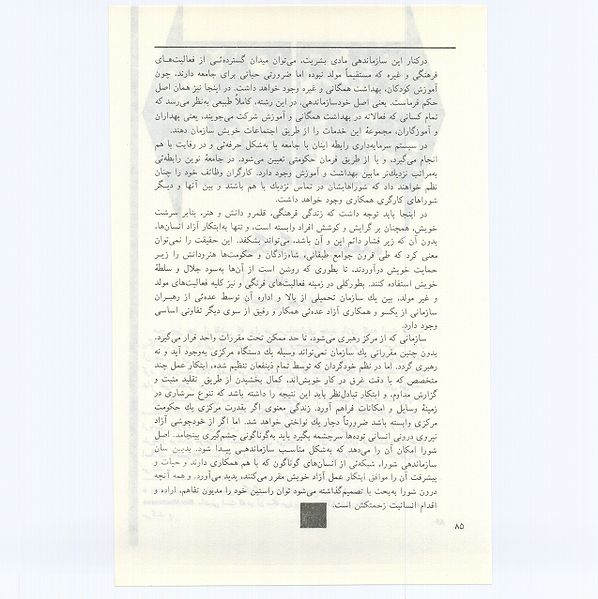 درکنار این سازماندهی مادی بشریت، می‌توان میدان گسترده‌ئی از فعالیت‌های
فرهنگی و غیره که مستقیماً مولد نبوده اما ضرورتی حیاتی برای جامعه دارند، چون
آموزش کودکان، بهداشت همگانی و غیره وجود خواهد داشت. در اینجا نیز همان اصل
حکم فرماست. یعنی اصل خودسازماندهی، در این رشته، کاملاً طبیعی به‌نظر می‌رسد که
تمام کسانی که فعالانه در بهداشت همگانی و آموزش شرکت می‌جویند، یعنی بهداران
و آموزگاران، مجموعهٔ این خدمات را از طریق اجتماعات خویش سازمان دهند.
در سیستم سرمایه‌داری رابطه اینان با جامعه یا به‌شکل حرفه‌ئی و در رقابت با هم
انجام می‌گیرد، و یا از طریق فرمان حکومتی تعیین می‌شود. در جامعهٔ نوین رابطه‌ئی
به‌مراتب نزدیک‌تر مابین بهداشت و آموزش وجود دارد. کارگران وظائف خود را چنان
نظم خواهند داد که شوراهایشان در تماس نزدیك با هم باشند و بین آنها و دیگر
شوراهای کارگری همکاری وجود خواهد داشت.
در اینجا باید توجه داشت که زندگی فرهنگی، قلمرو دانش و هنر، بنابر سرشت
خویش، همچنان بر گرایش و کوشش افراد وابسته است، و تنها به‌ابتکار آزاد انسان‌ها،
بدون آن که زیر فشار دائم این و آن باشد، می‌تواند بشکفد. این حقیقت را نمی‌توان
معنی کرد که طی قرون جوامع طبقاتی، شاه‌زادگان و حکومت‌ها هنرودانش را زیر
حمایت خویش درآوردند، تا بطوری که روشن است از آن‌ها به‌سود جلال و سلطهٔ
خویش استفاده کنند. بطورکلی در زمینه فعالیت‌های فرنگی و نیز کلیه فعالیت‌های مولد
و غیر مولد، بین یك سازمان تحمیلی از بالا و اداره آن توسط عده‌ئی از رهبران
سازمانی از یکسو و همکاری آزاد عده‌ئی همکار و رفیق از سوی دیگر تفاوتی اساسی
وجود دارد.
سازمانی که از مرکز رهبری می‌شود، تا حد ممکن تحت مقررات واحد قرار می‌گیرد.
بدون چنین مقرراتی یك سازمان نمی‌تواند وسیله یك دستگاه مرکزی به‌وجود آید و نه
رهبری گردد. اما در نظم خودگردان که توسط تمام ذینفعان تنظیم شده، ابتکار عمل چند
متخصص که با دقت غرق در کار خویش‌اند، کمال بخشیدن از طریق تقلید مثبت و
گزارش مداوم، و ابتکار تبادل‌نظر باید این نتیجه را داشته باشد که تنوع سرشاری در
زمینهٔ وسایل و امکانات فراهم آورد. زندگی معنوی اگر بقدرت مرکزی یك حکومت
مرکزی وابسته باشد ضرورتاً دچار یك نواختی خواهد شد. اما اگر از خودجوشی آزاد
نیروی درونی انسانی توده‌ها سرچشمه بگیرد باید به‌گوناگونی چشم‌گیری بینجامد. اصل
شورا امکان آن را می‌دهد که به‌شکل مناسب سازماندهی پیدا شود. بدین سان
سازماندهی شورا، شبکه‌ئی از انسان‌های گوناگون که با هم همکاری دارند و حیات و
پیشرفت آن را موافق ابتکار عمل آزاد خویش مقرر می‌کنند، پدید می‌آورد. و همه آنچه
درون شورا به‌بحث با تصمیم‌گذاشته می‌شود توان راستین خود را مدیون تفاهم، اراده و
اقدام انسانیت زحمتکش است.
۸۵